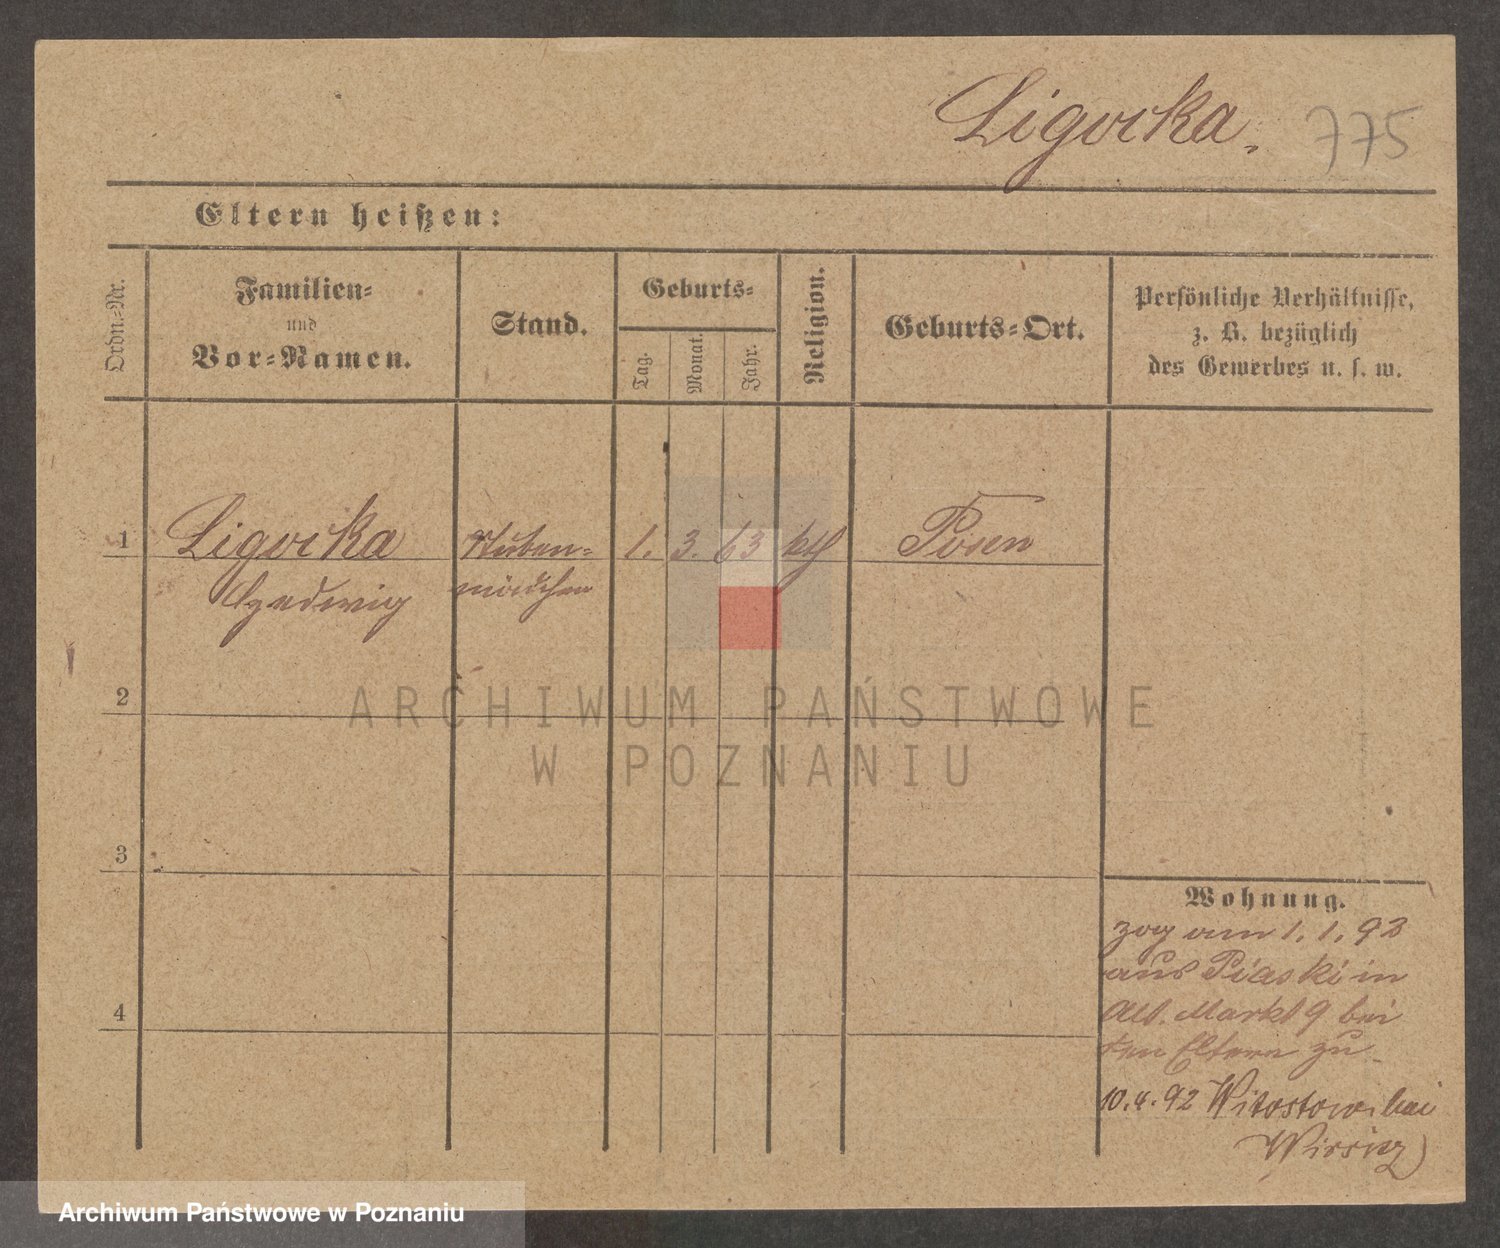 Ligocka. 775
Eltern heißen:
Ordn.-Nr.
Familien-
und
Vor-Namen.
Stand.
Geburts-
Tag.
Monat.
Jahr.
Religion.
Geburts-Ort.
Persönliche Verhältnisse,
z. B. bezüglich
des Gewerbes u. s. w.
1 Ligocka Stuben- 1. 3. 63 kth Posen
Hedwig mädchen
2
3
4
Wohnung.
zog am 1. 1. 92
aus Piaski in
Alt. Markt 9 bei
den Eltern zu
10.4.92 bei
ARCHIWUM PAŃSTWOWE
W POZNANIU
Archiwum Państwowe w Poznaniu